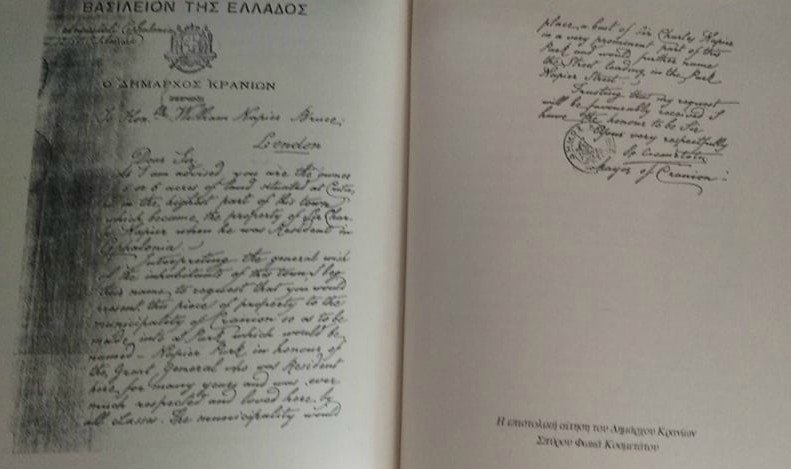 ΒΑΣΙΛΕΙΟΝ ΤΗΣ ΕΛΛΑΔΟΣ
Ο ΔΗΜΑΡΧΟΣ ΚΡΑΝΙΩΝ
To Hon. William Napier Bruce.
London
Dear Sir
As I am advised, you are the owner
of 5 or 6 acres of land situated at
in the highest part of this town
which became the property of Sir Char-
les Napier when he was Resident in
Cephalonia.
Interpreting the general wish
of the inhabitants of this town, I beg
their name, to request that you would
present this piece of property to the
municipality of Cranion so as to be
made into a Park which would be
named - Napier Park in honour of
the Great General who was Resident
here for many years and was ever
much respected and loved here by
all classes. The municipality would
place a bust of Sir Charles Napier
in a very prominent part of this
Park and would further name
the Street leading in the Park
Napier Street.
Trusting that my request
will be favourably received I
have the honour to be Sir
Yours very respectfully
Mayor of Cranion:
Η επιστολική αίτηση του Δημάρχου Κρανίων
Σπύρου Φωκά Κοσμετάτου